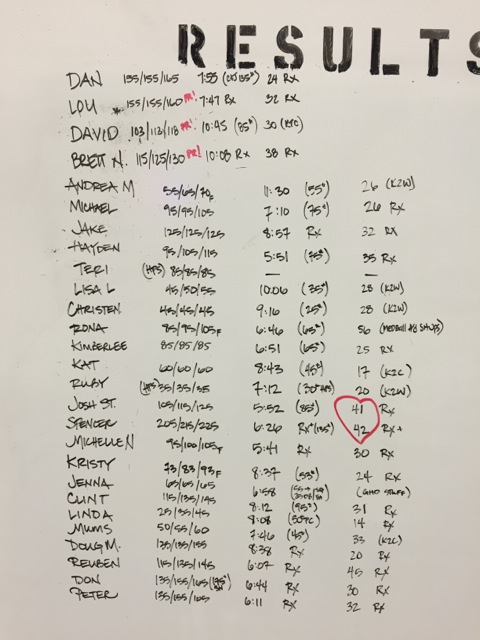 RESULTS
DAN 135/155/165 7:55 24 Rx
LOU 155/155/160 PR! 7:47 Rx 32 Rx
DAVID 103/113/118 PR! 10:45 (75#) 30 (KTC)
BRETT N. 115/125/130 PR! 10:08 Rx 38 Rx
ANDREA M 55/65/70F 11:30 (55#) 26 (K2W)
MICHAEL 95/95/105 7:10 (75#) 26 Rx
JAKE 125/125/125 8:57 Rx 32 Rx
HAYDEN 95/105/115 5:51 35 Rx
TERI (HPS) 85/85/85 — —
LISA L 45/50/55 10:06 (35#) 28 (K2W)
CHRISTEN 45/45/45 9:16 (25#) 28 (K2W)
RONA 85/95/105F 6:46 (65#) 56
KIMBERLEE 85/85/85 6:51 (65#) 25 RX
KAT 60/60/60 8:43 (45#) 17 (K2C)
RUBY (HPS) 35/35/35 7:12 20 (K2W)
JOSH ST. 105/115/125 5:52 (85#) 41 Rx
SPENCER 205/215/225 6:26 Rx+(135#) 42 Rx+
MICHELLE N 95/100/105F 5:41 Rx 30 Rx
KRISTY 73/83/93F 8:37 (53#) 24 Rx
JENNA 65/65/65 6:58 (GHD STUFF)
CLINT 115/135/145 8:12 (95#) 31 Rx
LINDA 25/35/45 8:08 14 Rx
MUMS 50/55/60 7:46 (45#) 33 (K2C)
DOUG M. 135/135/155 8:38 Rx 20 Rx
REUBEN 115/135/145 6:07 Rx 45 Rx
DON 135/155/165 6:44 Rx 30 Rx
PETER 135/155/165 6:11 Rx 32 Rx